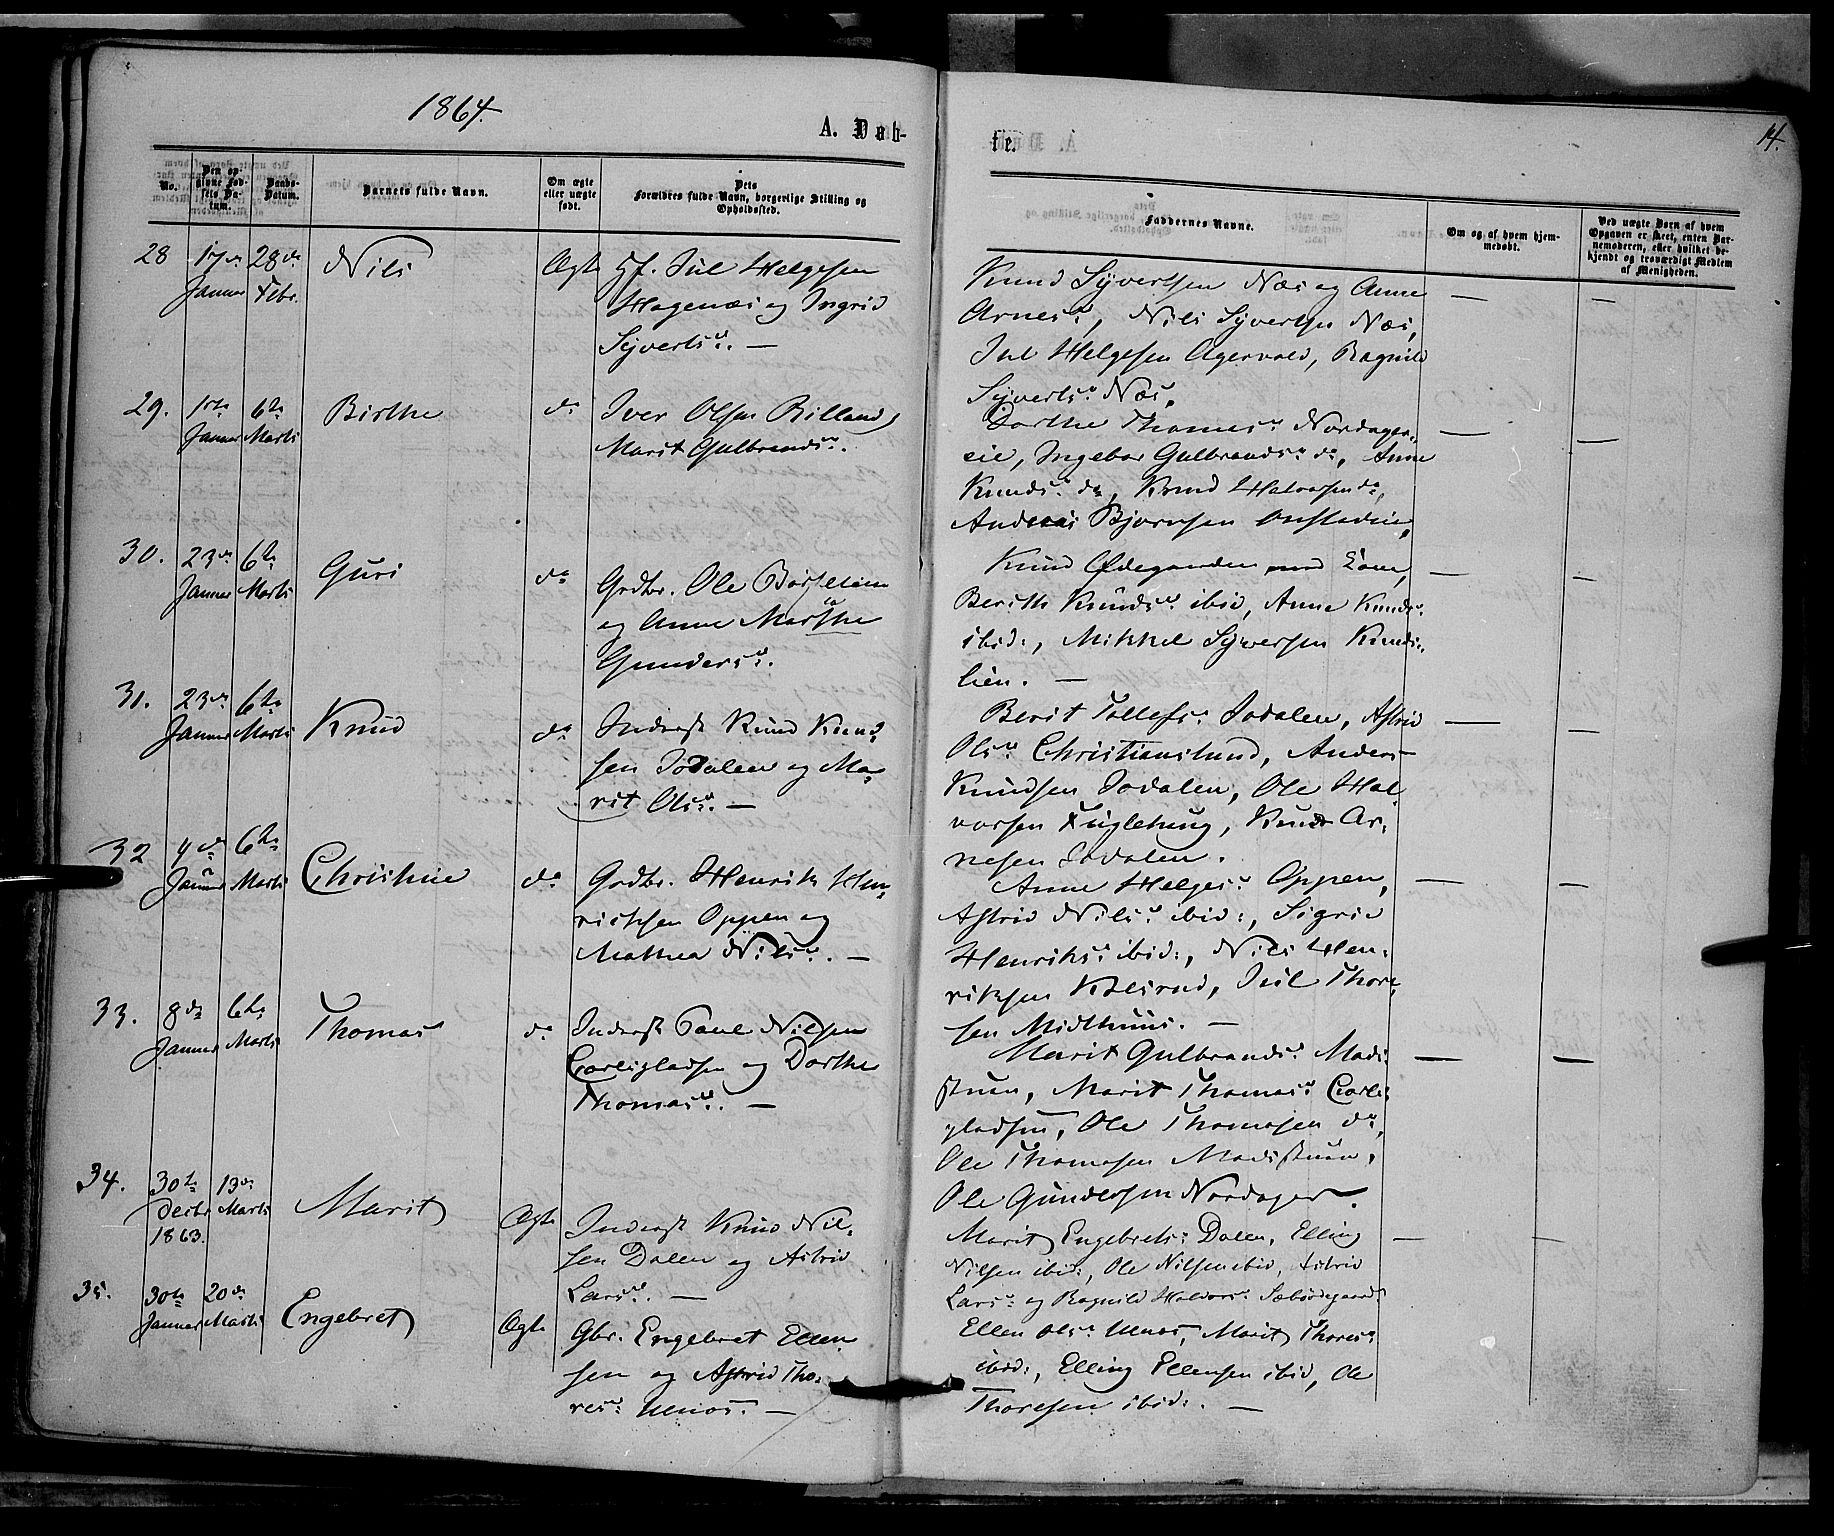 1864.
A. Døb-
fe.
14.
No.
Den op-
givne Fød-
sels Da-
tum.
Daabs-
Datum.
Barnets fulde Navn.
Om ægte
eller uægte
født.
Dets
Forældres fulde Navn, borgerlige Stilling og
Opholdssted.
Faddernes Navne.
Om og af hvem hjem-
medøbt.
Ved uægte Børn af hvem
Opgaven er skeet, enten Bar-
nemoderen, eller hvilket be-
kjendt og troværdigt Medlem
af Menigheden.
28 17de Januar 28de Febr. Nils Ægte Gf. Jul Helgesen
Hagenæs og Ingrid
Syvertsd. —
Knud Syvertsen Næs og Anne
Arnesd, Nils Syvertsen Næs,
Jul Helgesen Agervold, Ragnild
Syvertsd Næs.
29. Januar 6te Marts Birthe do Iver Olsen
Marit Gulbrandsd.
Dorthe Thomesd Nordager-
eie, Ingebor Gulbrandsd do, Anne
Knudsd do, Knud Halvorsen do,
Andreas Bjørnsen
30. 23de Januar 6te Marts Guri do Grdbr. Ole
og Anne Marthe
Gundersd.
Knud Ødegaarden med Kone,
Berith Knudsd ibid, Anne Knudsd
ibid:, Mikkel Syversen Knuds-
lien. —
31. 23de Januar 6te Marts Knud do Inderst Knud Knud-
sen Jodalen og Ma-
rit Olsd. —
Berit Tollefsd Jodalen, Astrid
Olsd Christianslund, Anders
Knudsen Jodalen, Ole Hal-
vorsen Fuglehaug, Knud Ar-
nesen Jodalen.
32 4de Januar 6te Marts Christine do Grdbr. Henrik Hen-
riksen Oppen og
Mathea Nilsd. —
Anne Helgesd Oppen,
Astrid Nilsd ibid:, Sigrid
Henriksd ibid:, Nils Hen-
riksen Kolsrud, Jul Thore-
sen Midthuus. —
33. 8de Januar 6te Marts Thomas do Inderst Paul Nilsen
og Dorthe
Thomasd. —
Marit Gulbrandsd Mads-
stuen, Marit Thomasd
Ole Thomasen do,
Ole Thomasen Madsstuen,
Ole Gundersen Nordager.
34. 30te Decbr 1863. 13de Marts Marit Ægte Inderst Knud Nil-
sen Dalen og Astrid
Larsd. —
Marit Engebretsd Dalen, Elling
Nilsen ibid:, Ole Nilsen ibid, Astrid
Larsd og Ragnild Halvorsd
35. 30te Januar 20de Marts Engebret Ægte Gbr. Engebret Ellen-
sen og Astrid Tho-
resd Menos. —
Ellen Olsd Menos, Marit Thoresd
ibid:, Elling Ellensen ibid, Ole
Thoresen ibid:. —